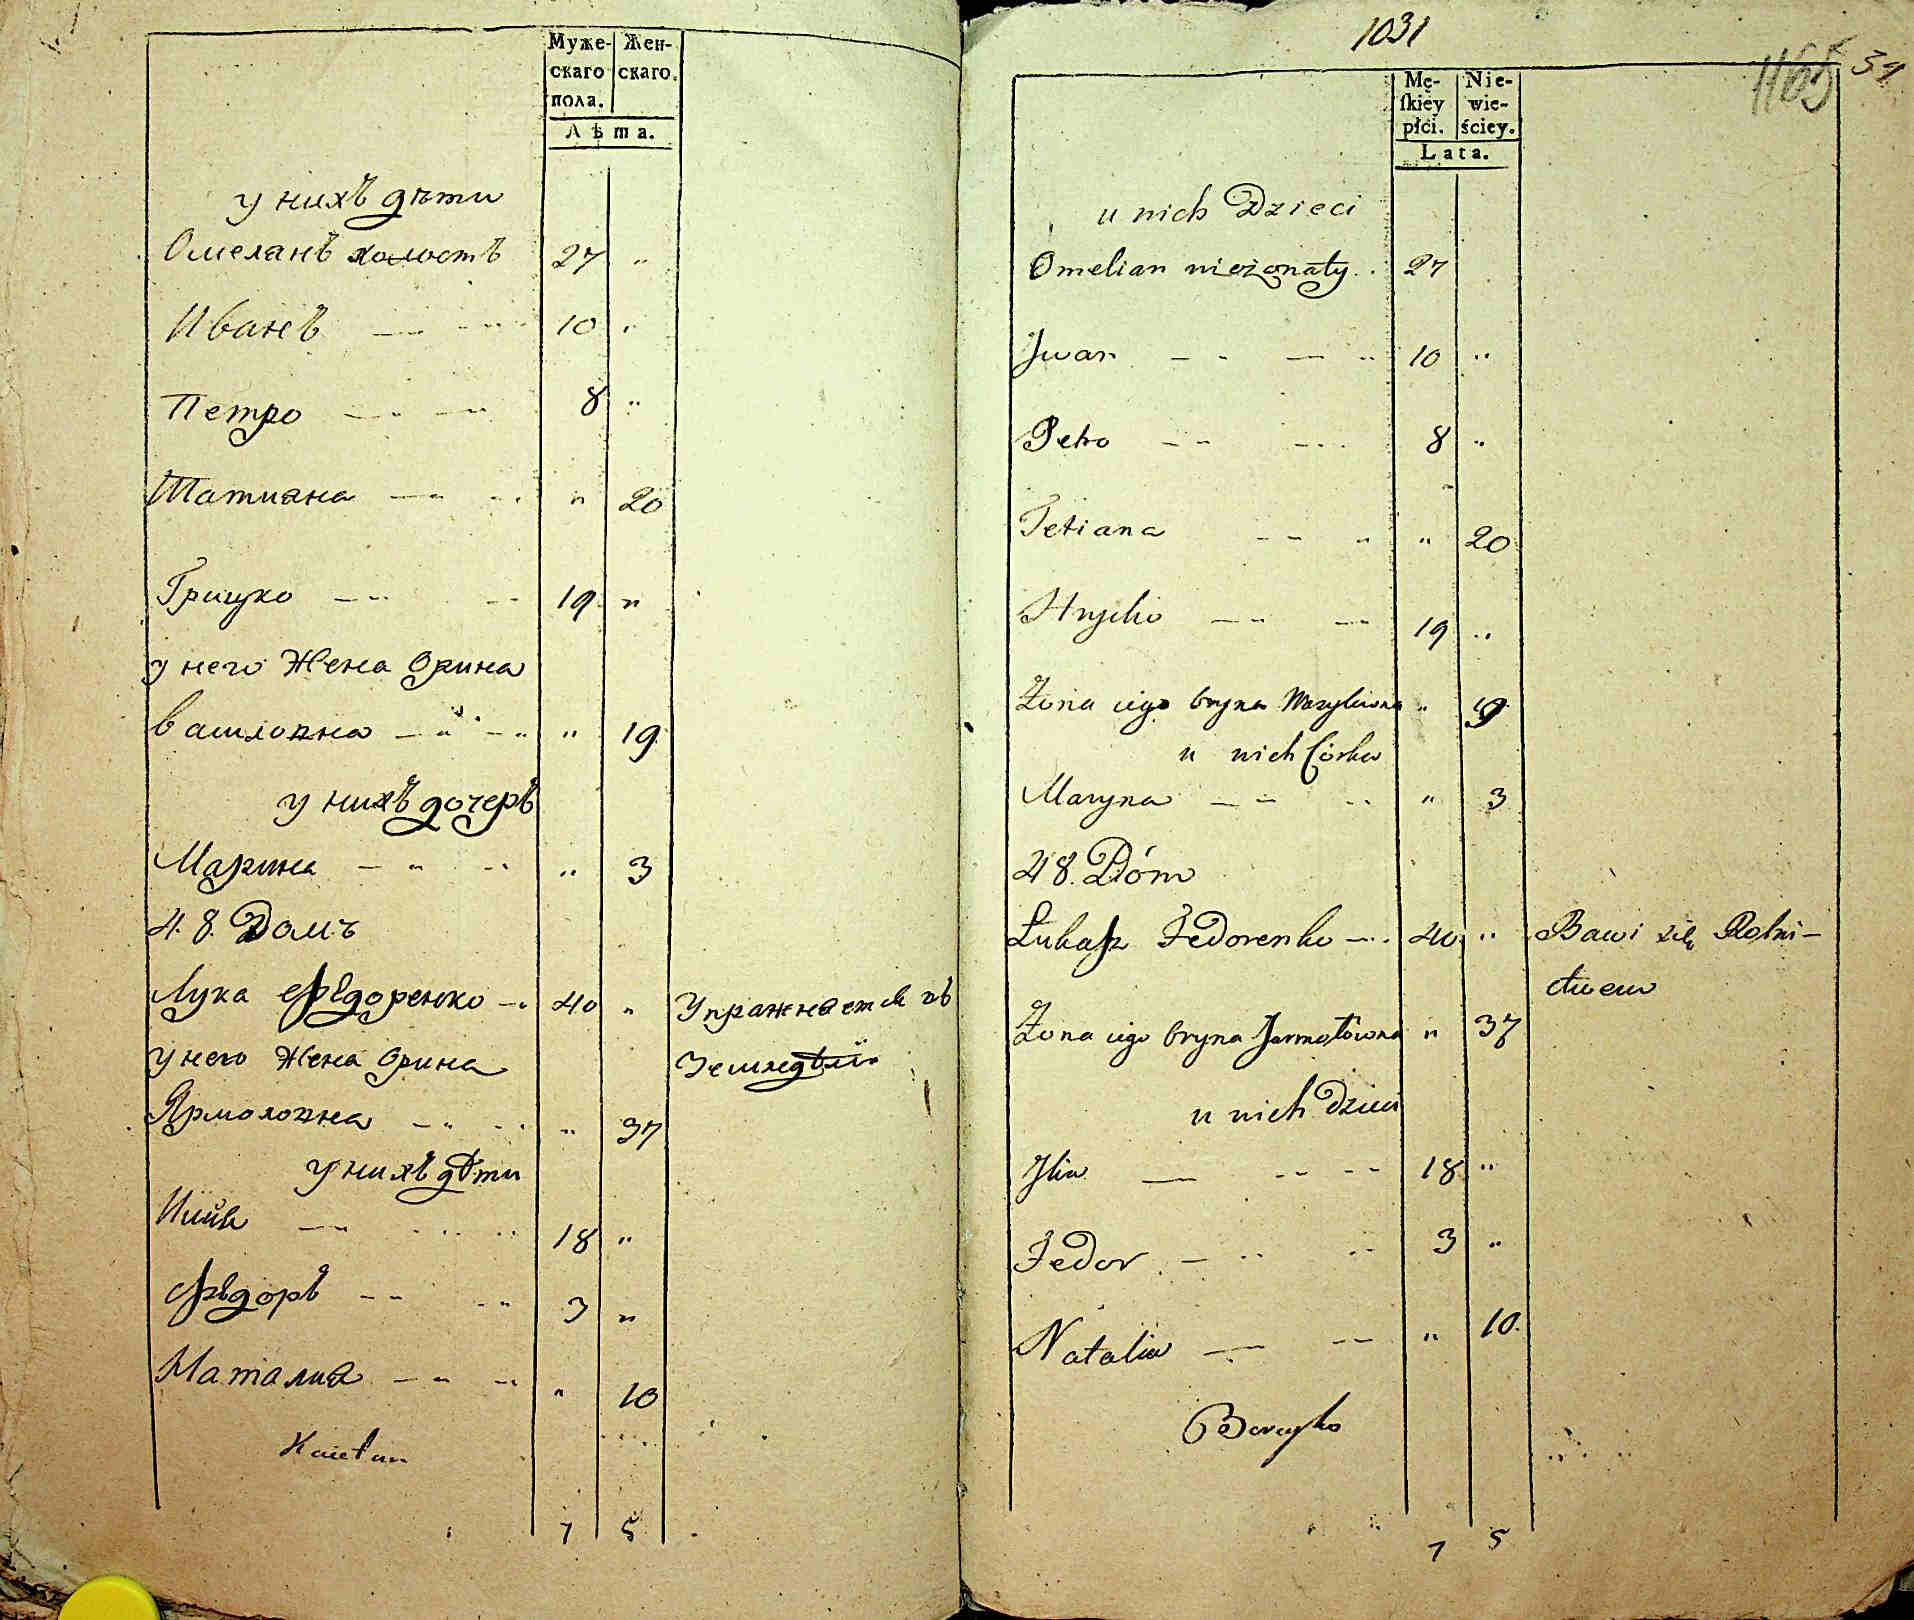 Муже- Жен-
скаго скаго.
пола.
Лѣта.
у нихъ дѣти
Омеланъ холостъ 27 "
Иванъ 10 "
Петро 8 "
Татиана " 20
Грицко 19 "
у него Жена Орина
" 19
у нихъ дочеръ
Марина " 3
48. Домъ
Лука Федоренко 40 " Упражнаетса въ
у него Жена Орина Земледѣлiи
Ярмоловна " 37
у нихъ дѣти
18 "
Фѣдоръ 3 "
Наталиа " 10
Kaietan
7 5
1031
1165 34
Mę- Nie-
ſkiéy wie-
płći. ściey.
Lata.
u nich Dzieci
Omelian nieżonaty 27
Jwan 10 "
Petro 8 "
Tetiana " 20
Hryćko 19 "
Żona iego Oryna "
u nich Córka
Maryna " 3
48. Dóm
Łukaſz Fedorenko 40 " Bawi się Rolni-
ctwem
Żona iego Oryna Jarmołowna " 37
u nich Dzieci
Jlia 18 "
Fedor 3 "
Natalia " 10.
7 5